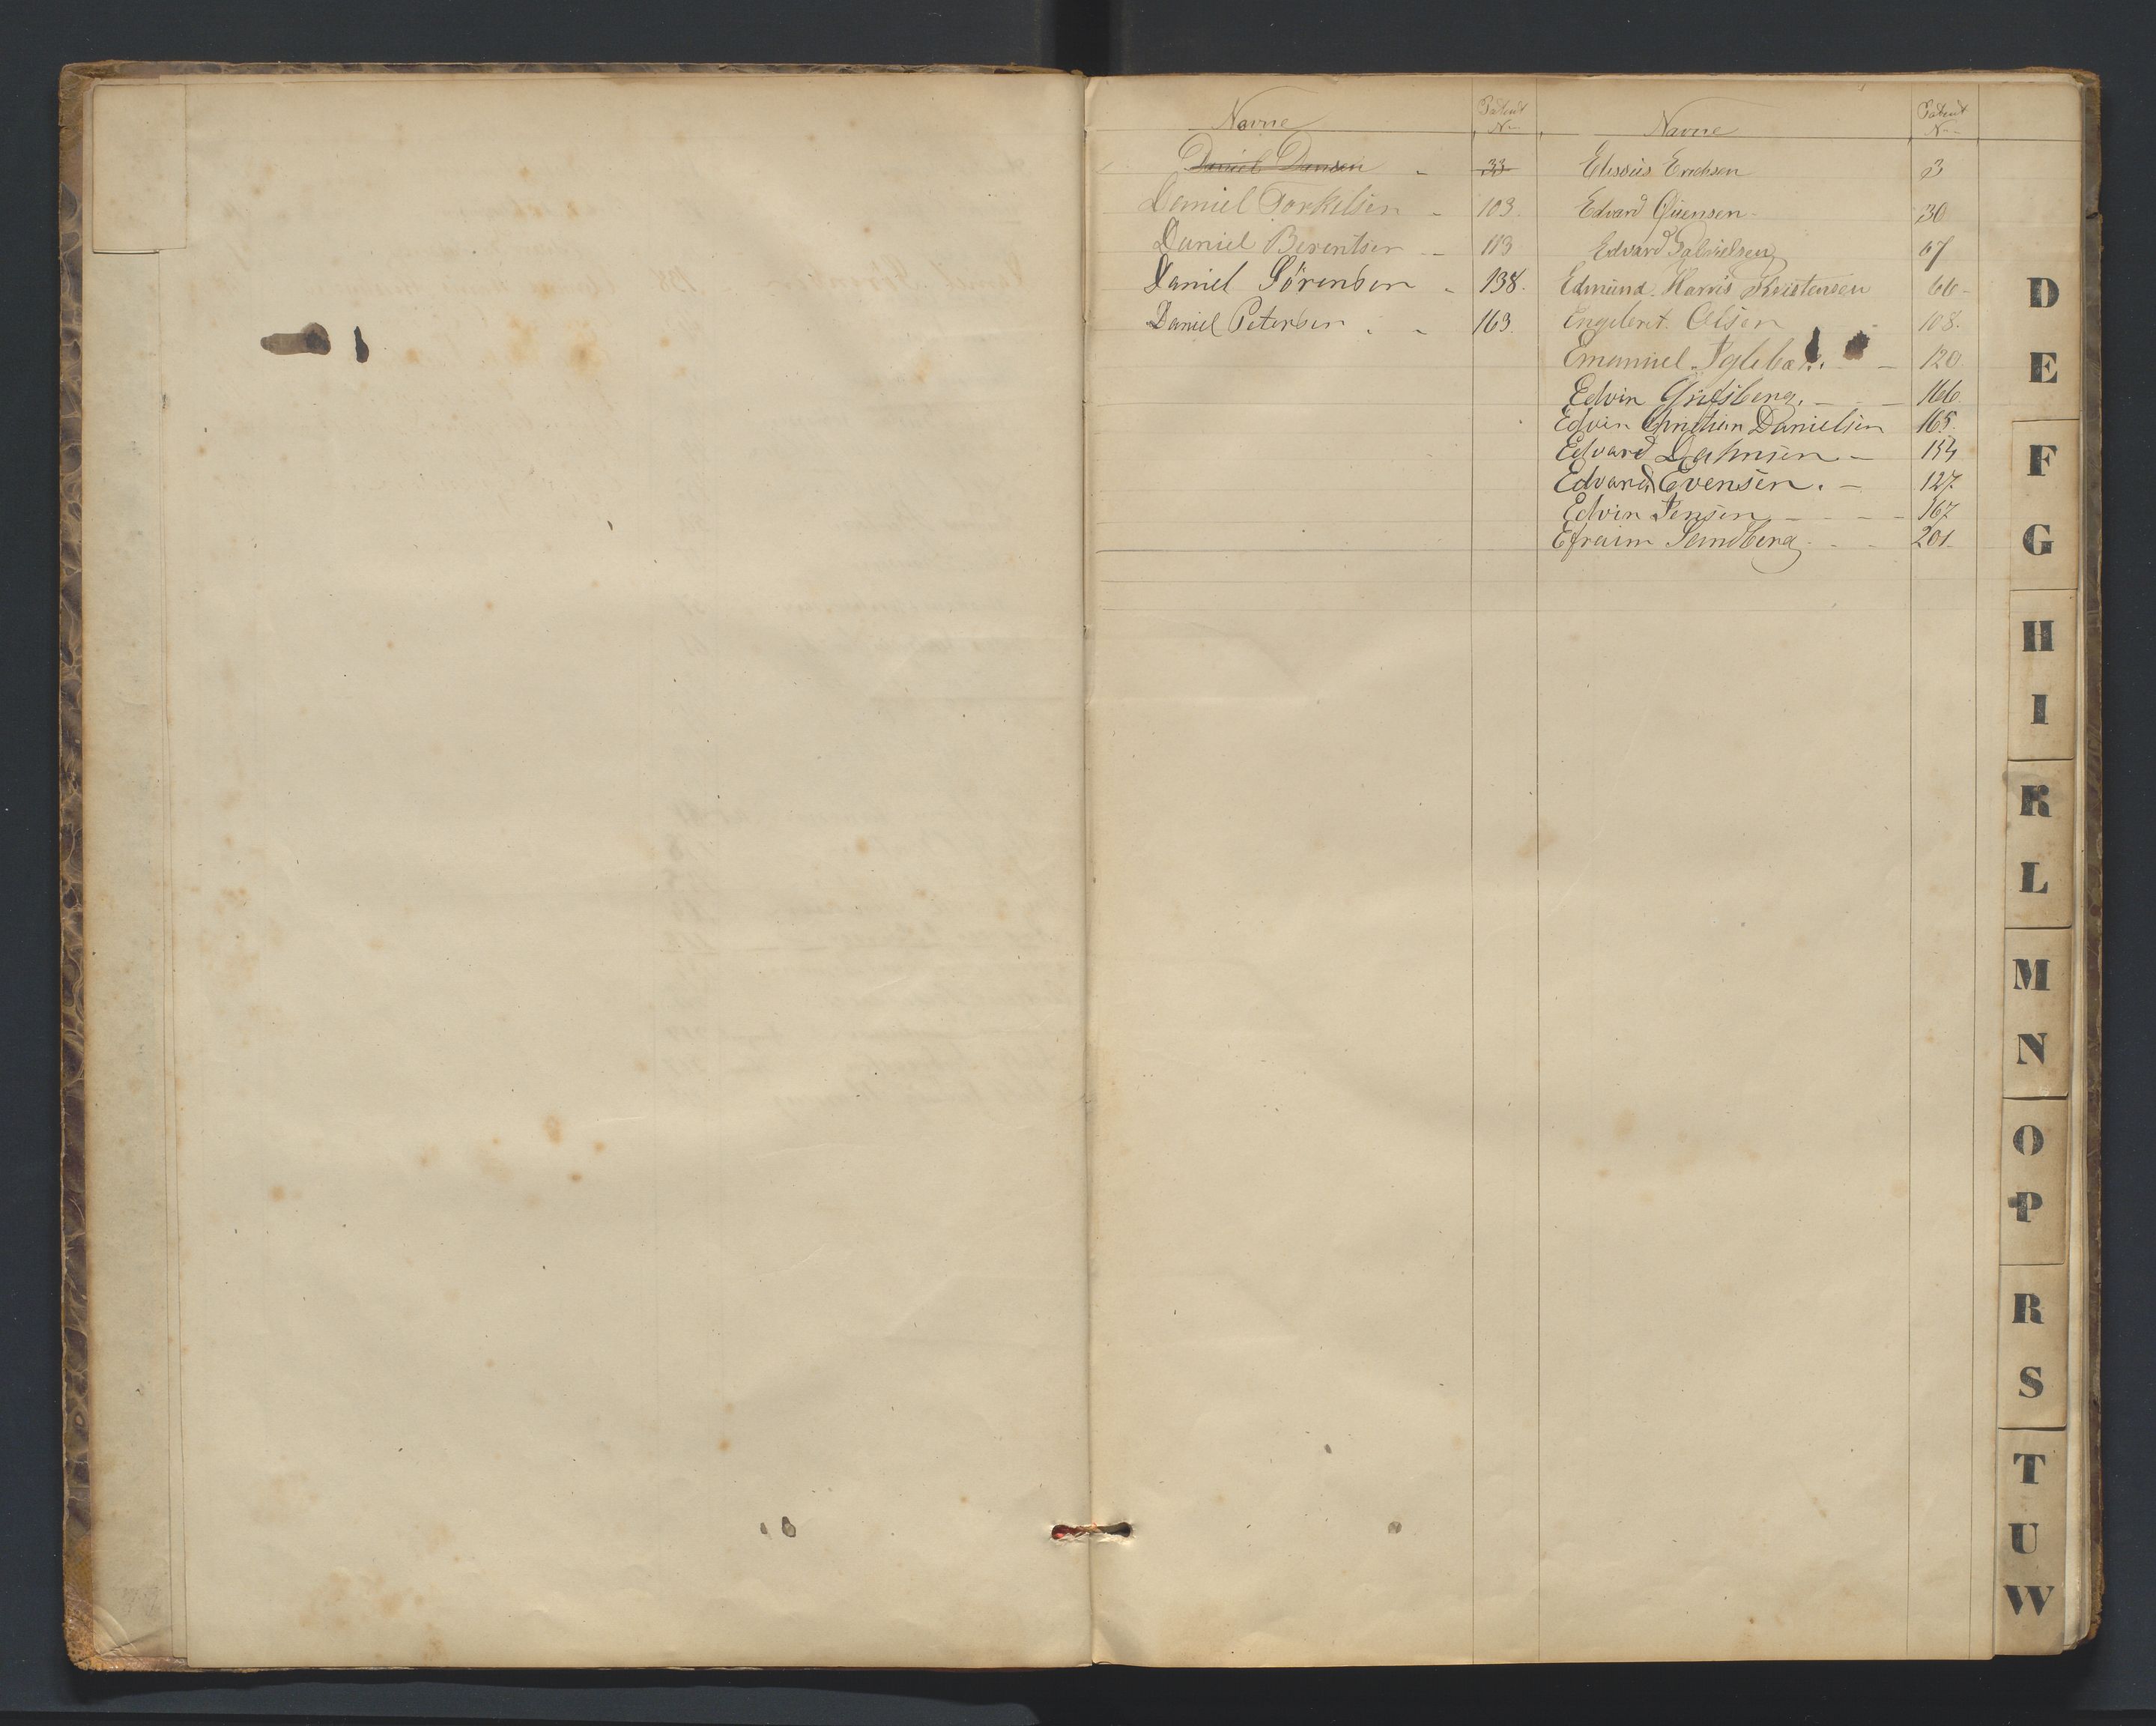 Navne Patent No
Daniel Dansen 33
Daniel Torkelsen - 103.
Daniel Berentsen - 113
Daniel Sörensen - 138.
Daniel Petersen . - 163.
Navne Patent No
Elisæus Erichsen 3
Edvard Qvensen - 30
Edvard Gabrielsen 67
Edmund Harris Kristensen 66 -
Engebret Olsen 108.
Emanuel 120.
Edvin 166.
Edvin Christian Danielsen 165.
Edvard - 154
Edvard Evensen. - 127.
Edvin Jensen - - - - 167
Efraim Sandberg - - - 201.
D
E
F
G
H
I
K
L
M
N
O
P
R
S
T
U
W